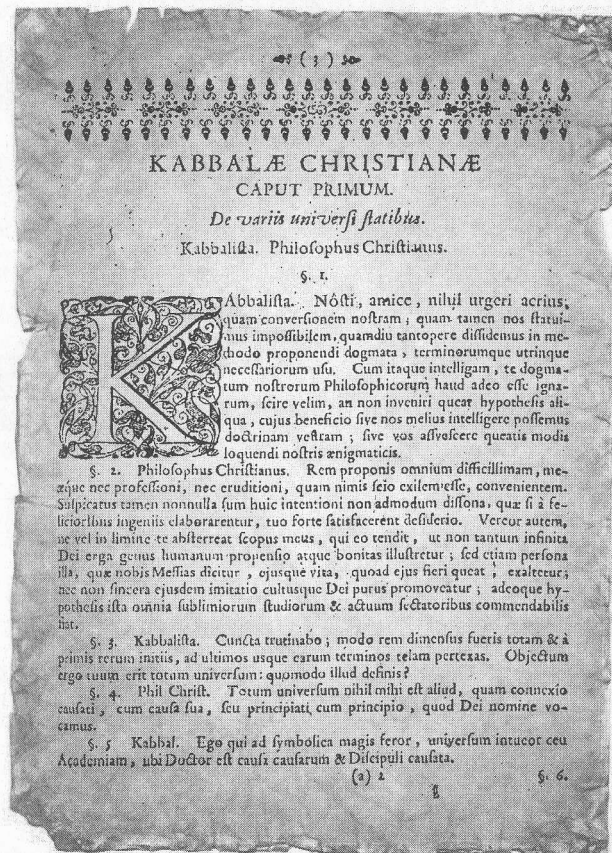 ( 3 )
KABBALÆ CHRISTIANÆ
CAPUT PRIMUM.
De variis universi statibus.
Kabbalista. Philosophus Christianus.
§. 1.
KAbbalista. Nôsti, amice, nihil urgeri acrius,
quam conversionem nostram; quam tamen nos statui-
mus impossibilem, quamdiu tantopere dissidemus in me-
thodo proponendi dogmata, terminorumque utrinque
necessariorum usu. Cum itaque intelligam, te dogma-
tum nostrorum Philosophicorum haud adeo esse igna-
rum, scire velim, an non inveniri queat hypothesis ali-
qua, cujus beneficio sive nos melius intelligere possemus
doctrinam vestram; sive vos assvescere queatis modis
loquendi nostris ænigmaticis.
§. 2. Philosophus Christianus. Rem proponis omnium difficillimam, me-
æque nec professioni, nec eruditioni, quam nimis scio exilem esse, convenientem.
Suspicatus tamen nonnulla sum huic intentioni non admodum dissona, quæ si à fe-
licioribus ingeniis elaborarentur, tuo forte satisfacerent desiderio. Vereor autem,
ne vel in limine te absterreat scopus meus, qui eo tendit, ut non tantum infinita
Dei erga genus humanum propensio atque bonitas illustretur; sed etiam persona
illa, quæ nobis Messias dicitur, ejusque vita, quoad ejus fieri queat, exaltetur;
nec non sincera ejusdem imitatio cultusque Dei purus promoveatur; adeoque hy-
pothesis ista omnia sublimiorum studiorum & actuum sectatoribus commendabilis
fiat.
§. 3. Kabbalista. Cuncta trutinabo; modo rem dimensus fueris totam & à
primis rerum initiis, ad ultimos usque earum terminos telam pertexas. Objectum
ergo tuum erit totum universum: quomodo illud definis?
§. 4. Phil Christ. Totum universum nihil mihi est aliud, quam connexio
causati, cum causa sua, seu principiati cum principio, quod Dei nomine vo-
camus.
§. 5 Kabbal. Ego qui ad symbolica magis feror, universum intueor ceu
Academiam, ubi Doctor est causa causarum & Discipuli causata.
(a) 2 §. 6.